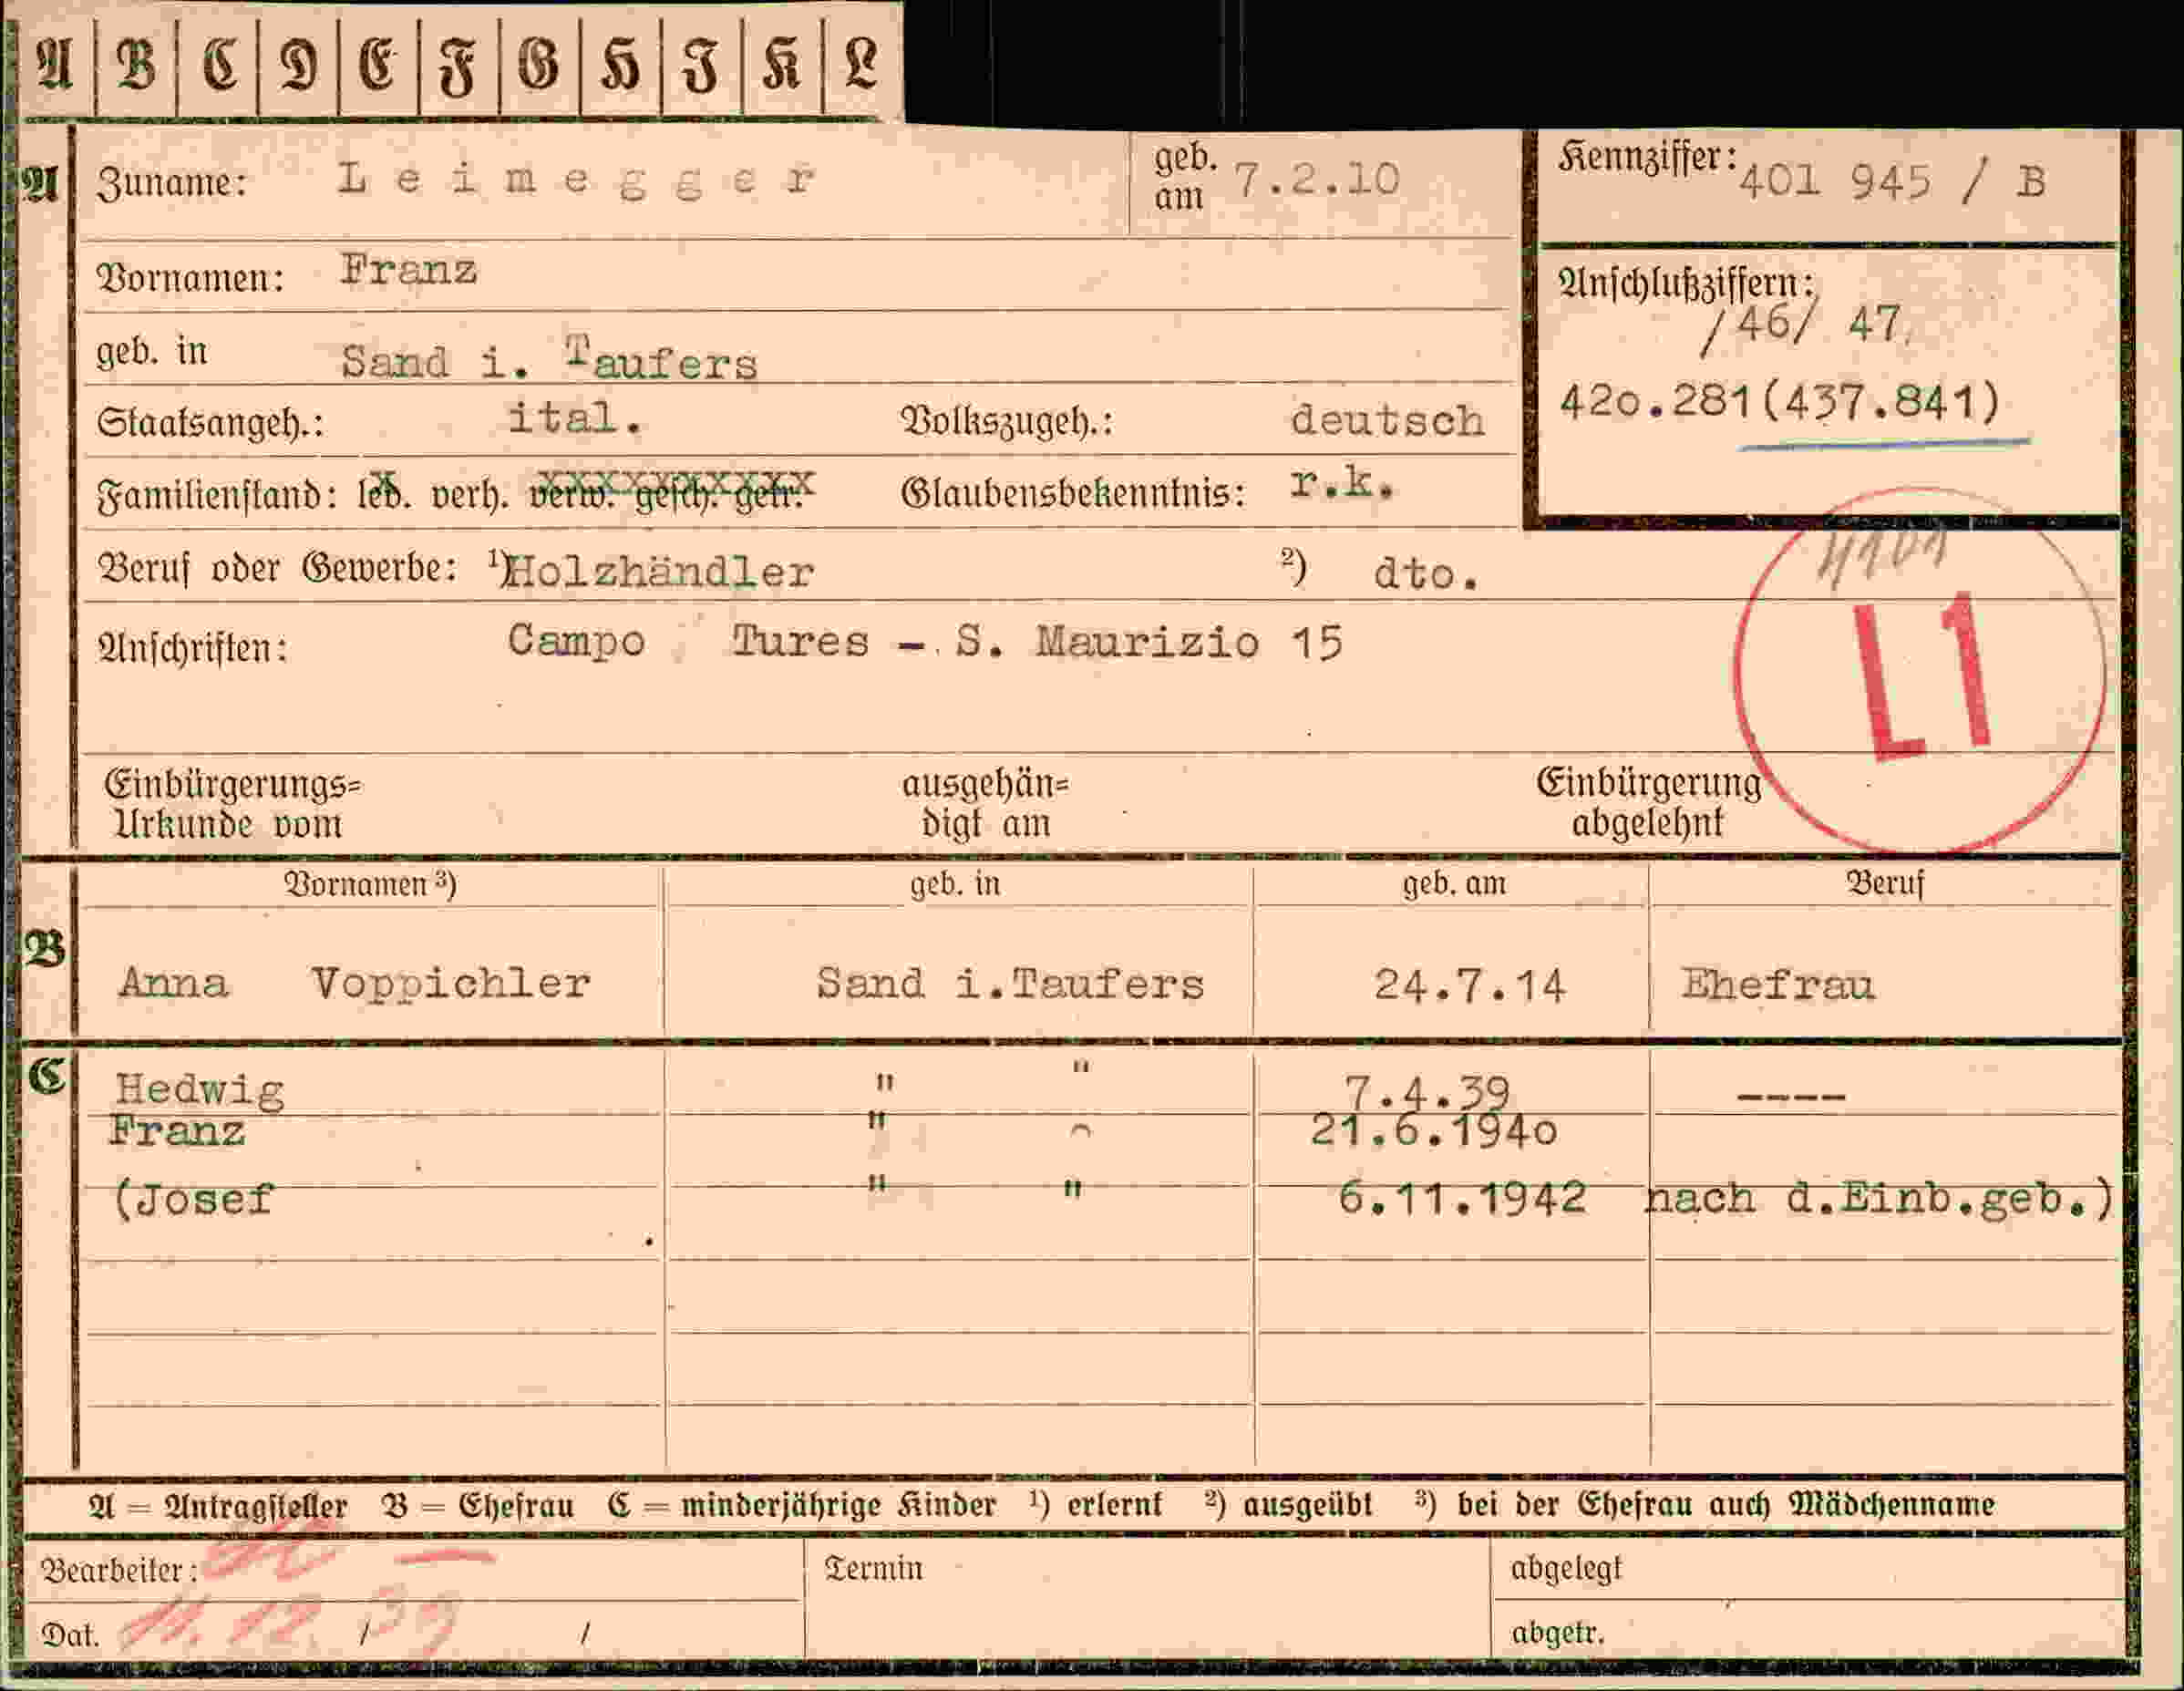 A B C D E F G H I K L
A Zuname: Leimegger geb. am 7.2.10
Kennziffer: 401 945 / B
Vornamen: Franz
Anschlußziffern:
/46/ 47
420.281(437.841)
geb. in Sand i. Taufers
Staatsangeh.: ital. Volkszugeh.: deutsch
Familienstand: led. verh. verw. gesch. getr. Glaubensbekenntnis: r.k.
Beruf oder Gewerbe: 1) Holzhändler 2) dto.
Anschriften: Campo Tures - S. Maurizio 15
L1
Einbürgerungs= ausgehän= Einbürgerung
Urkunde vom digt am abgelehnt
Vornamen 3) geb. in geb. am Beruf
B Anna Voppichler Sand i.Taufers 24.7.14 Ehefrau
C Hedwig " " 7.4.39 ----
Franz " 21.6.1940
(Josef " " 6.11.1942 nach d.Einb.geb.)
A = Antragsteller B = Ehefrau C = minderjährige Kinder 1) erlernt 2) ausgeübt 3) bei der Ehefrau auch Mädchenname
Bearbeiter: Termin abgelegt
Dat. / / abgetr.